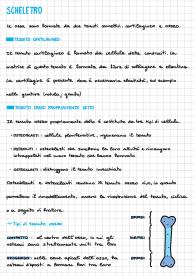 SCHELETRO
le ossa sono formate da due tessuti connettivi: cartilagineo e osseo
TESSUTO CARTILAGINEO
Il tessuto cartilagineo è formato da cellule dette condrociti. La
matrice di questo tessuto è formata da fibre di collagene e elastina.
La cartilagine è presente dove è necessaria elasticità, ad esempio
nelle giunture
TESSUTO OSSEO PROPRIAMENTE DETTO
Il tessuto osseo propriamente detto è costituito da tre tipi di cellule
- OSTEOBLASTI: cellule, rigenerano il tessuto
- OSTEOCITI: osteoblasti che smettono la loro attività e rimangono
intrappolati nel nuovo tessuto che hanno formato
- OSTEOCLASTI: distruggono il tessuto invecchiato
Osteoblasti e osteoclasti rendono il tessuto osseo vivo, in quanto
permettono il rimodellamento, ovvero la ricostruzione del tessuto,
a seguito di fratture
Tipi di tessuto osseo
COMPATTO: al centro dell'osso, in cui gli
osteoni sono strettamente uniti tra loro
SPUGNOSO: nelle zone apicali dell'osso, ha
osteoni disposti a formare fori tra loro